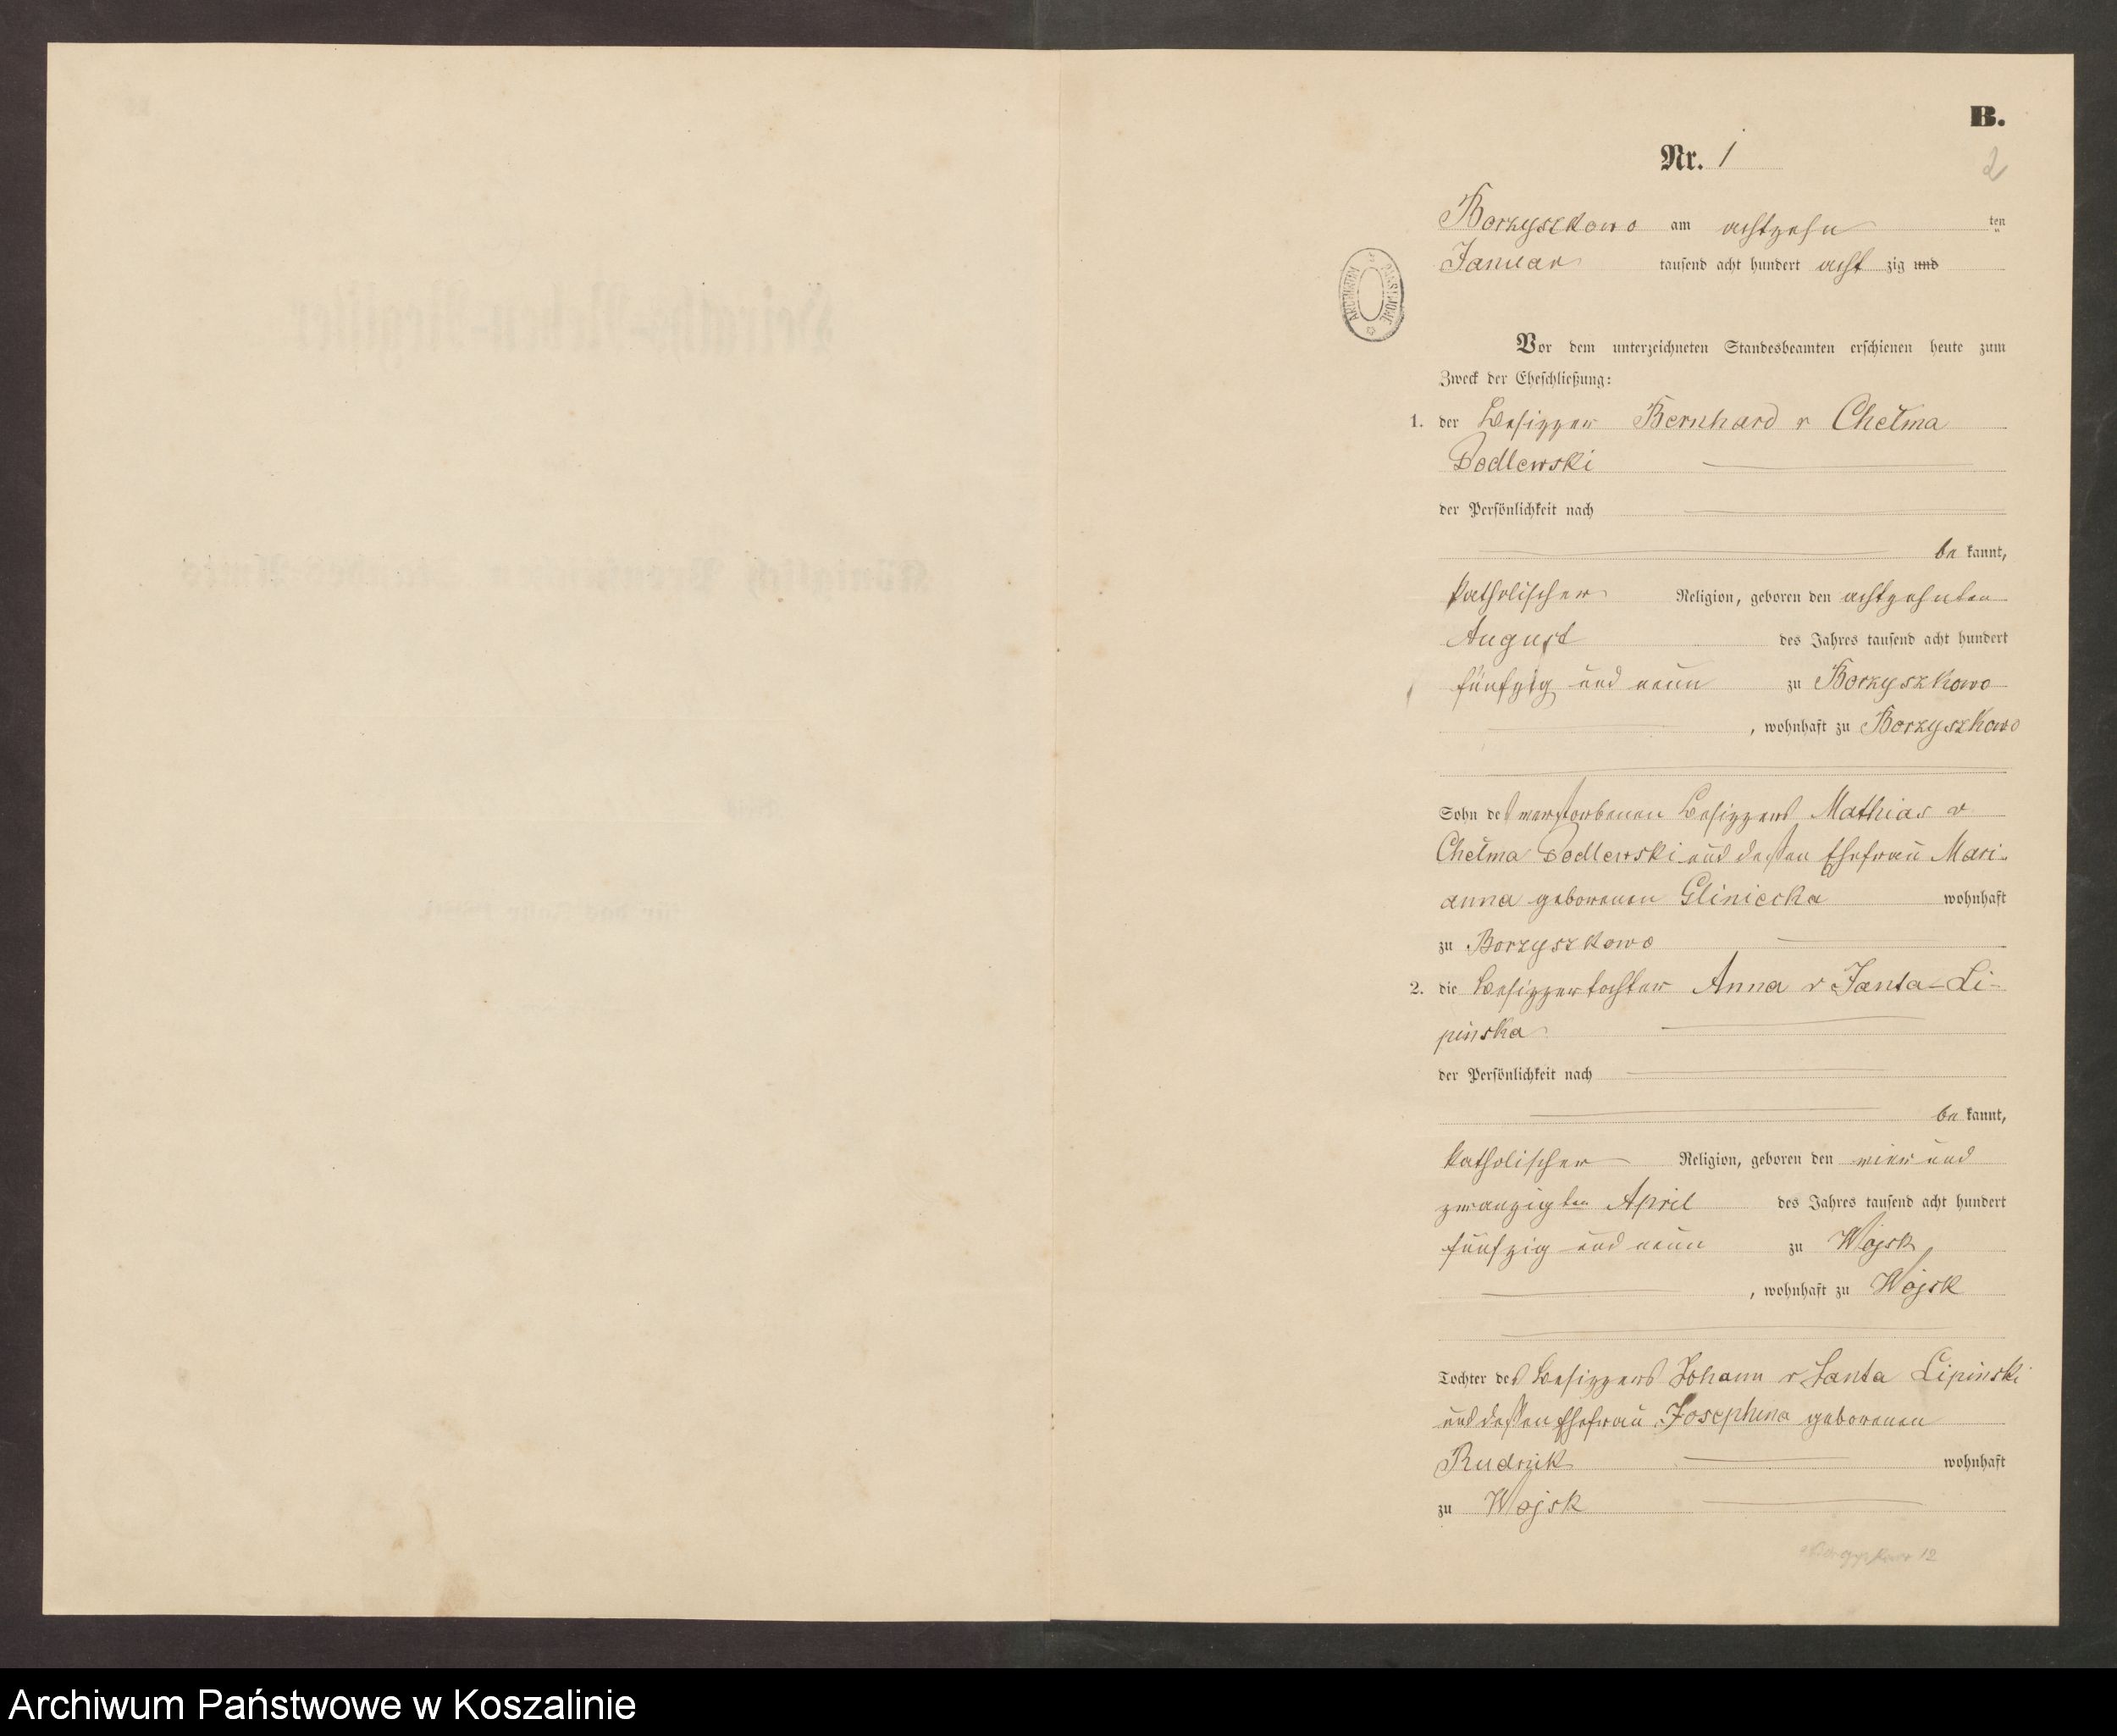 B.
Nr. 1
2
Borzyszkowo am achtzehn ten
Januar tausend acht hundert acht zig und
ARCHIWUM PAŃSTWOWE
Vor dem unterzeichneten Standesbeamten erschienen heute zum
Zweck der Eheschließung:
1. der Besizzer Bernhard v Chełma
Dodlewski
der Persönlichkeit nach
be kannt,
katholischer Religion, geboren den achtzehnten
August des Jahres tausend acht hundert
fünfzig und neun zu Borzyszkowo
, wohnhaft zu Borzyszkowo
Sohn des verstorbenen Besizzers Mathias v
Chełma Dodlewski und dessen Ehefrau Mari-
anna geborenen Gliniecka wohnhaft
zu Borzyszkowo
2. die Besizzertochter Anna v Janta-Li-
pinska
der Persönlichkeit nach
be kannt,
katholischer Religion, geboren den vier und
zwanzigten April des Jahres tausend acht hundert
fünfzig und neun zu Wojsk
, wohnhaft zu Wojsk
Tochter des Besizzers Johann v Janta Lipinski
und dessen Ehefrau Josephina geborenen
Rudnik wohnhaft
zu Wojsk
12
Archiwum Państwowe w Koszalinie